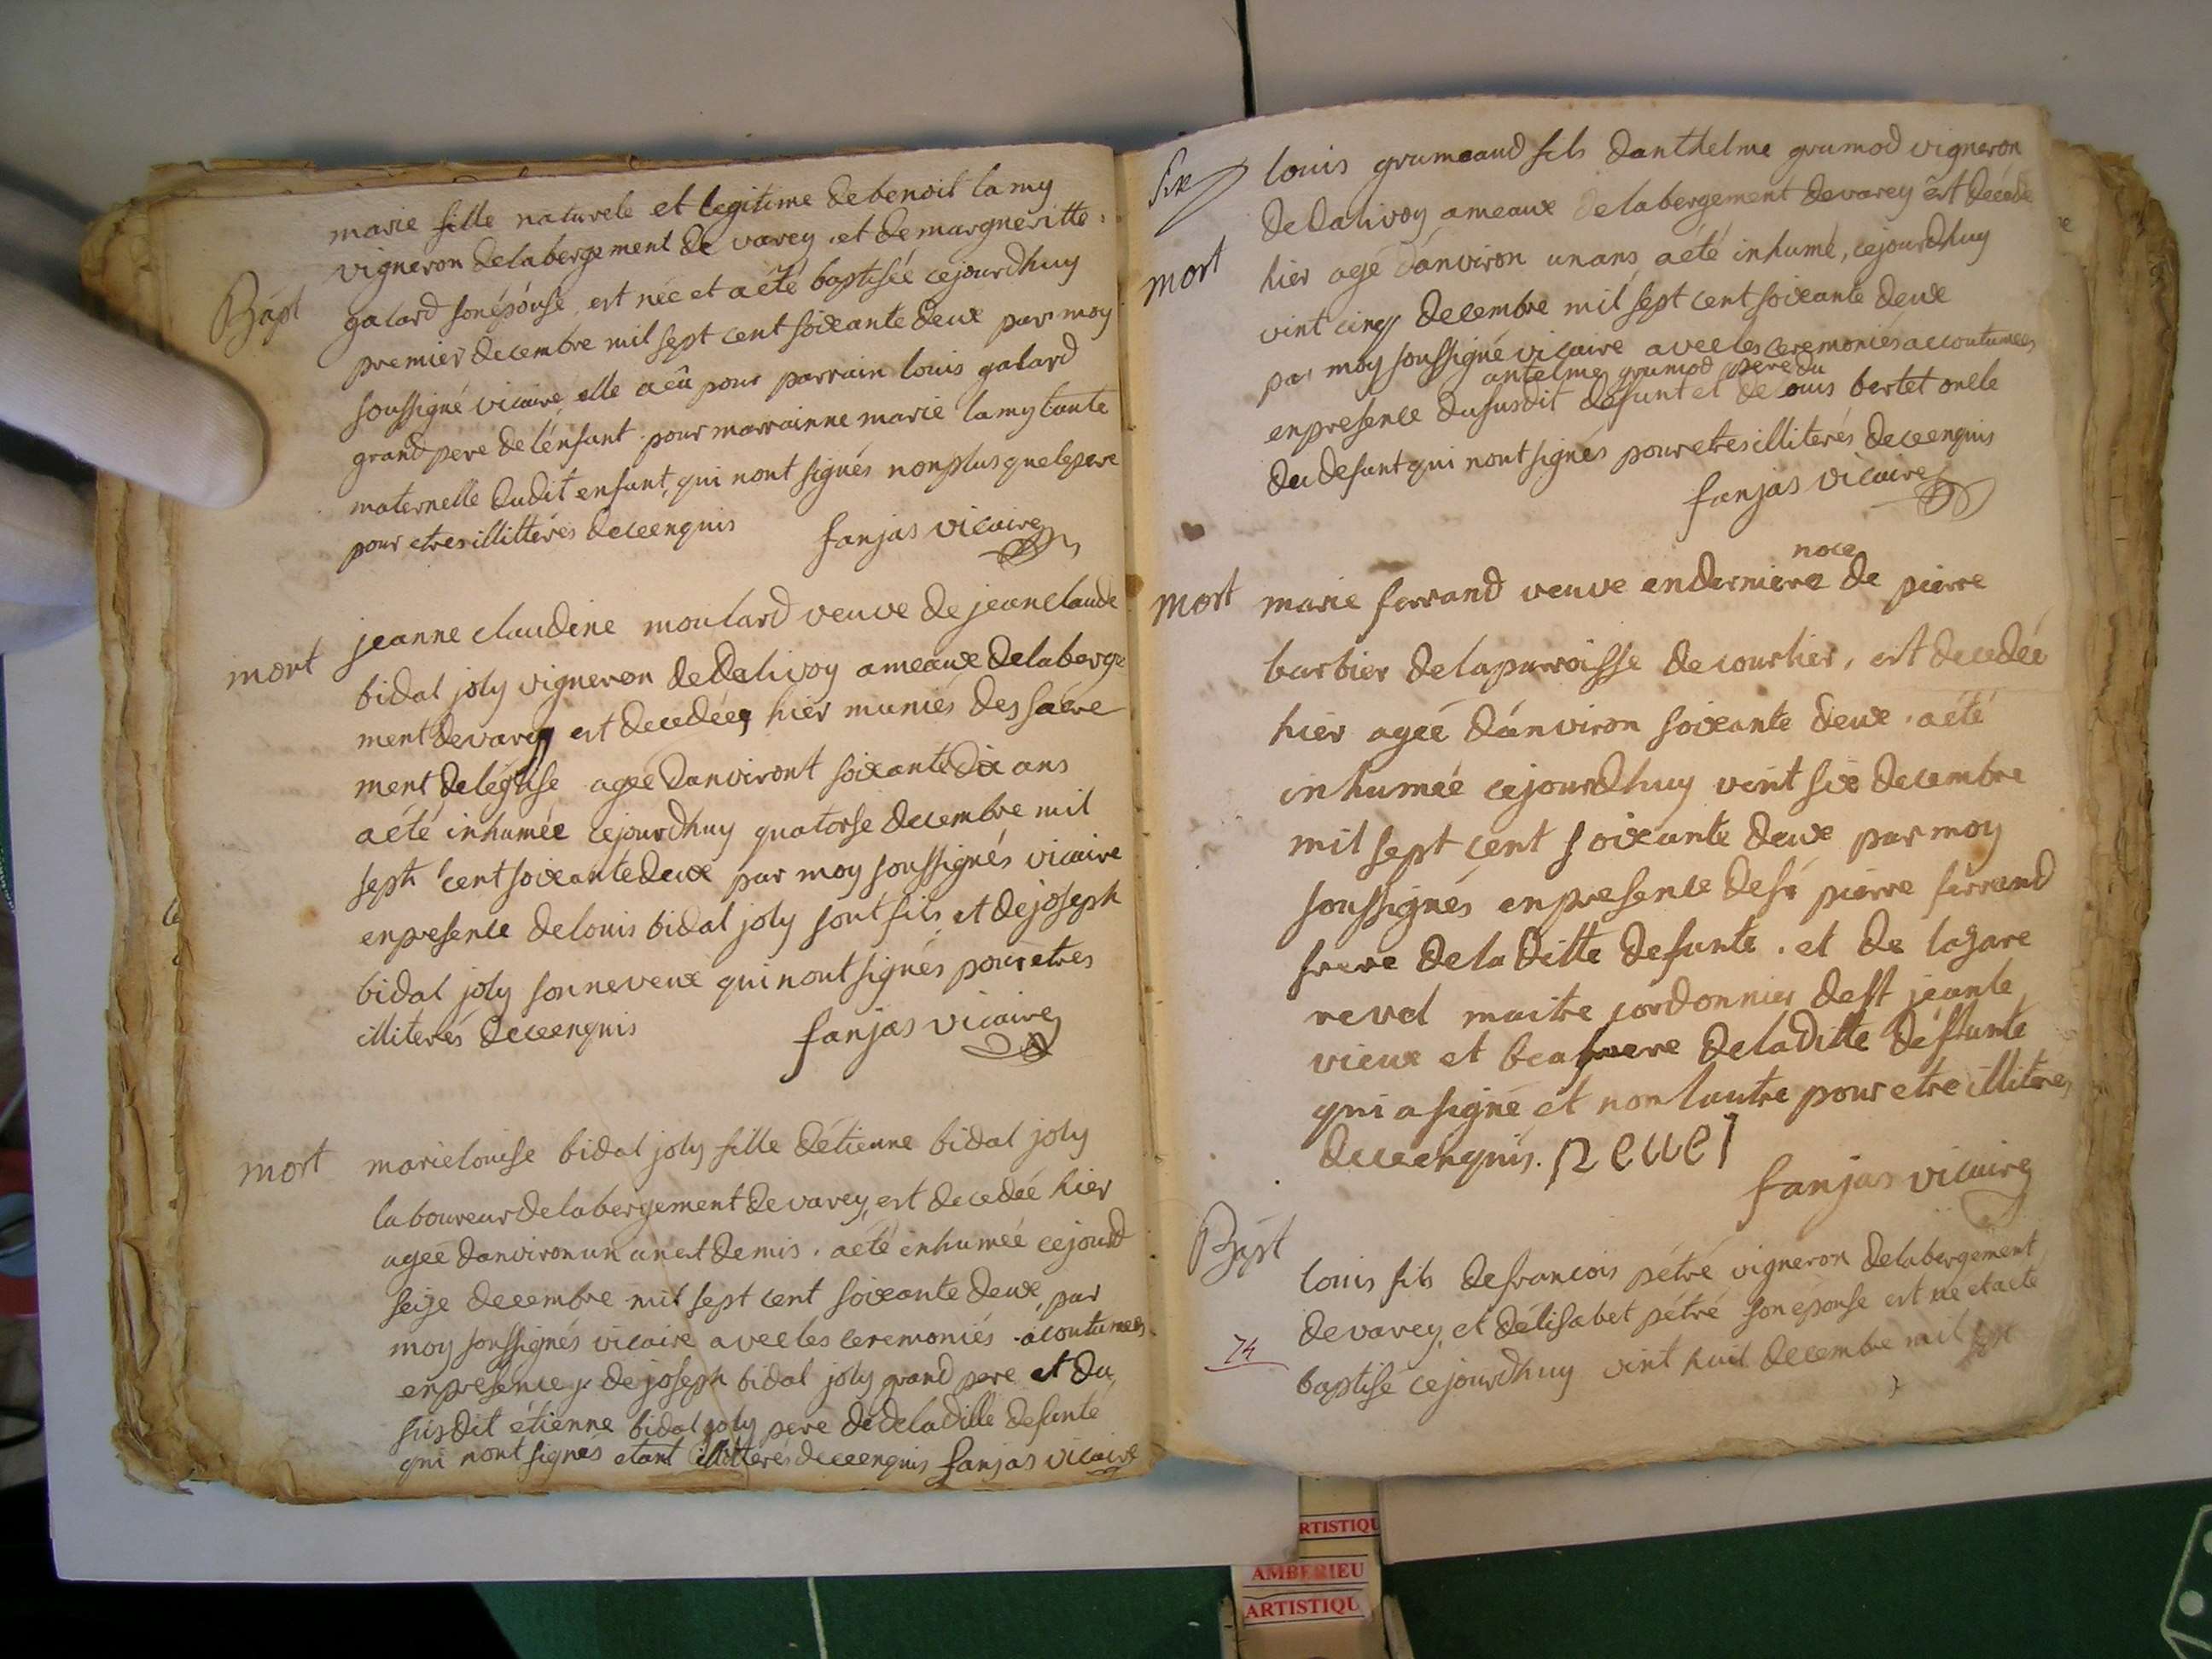 marie fille naturele et legitime de benoit lamy
vigneron delabergement de varey . et de margueritte
Bapt
galard son épouse, est née et a été baptisée cejourdhuy
premier decembre mil sept cent soixante deux par moy
soussigné vicaire, elle a eû pour parrain louis galard
grand pere de lénfant pour marrainne marie lamy tante
maternelle dudit enfant, qui nont signés nonplus que le pere
pour etres illittérés de ce enquis fanjas vicaire
mort
jeanne claudine moulard veuve de jean claude
bidal joly vigneron de dalivoy ameaux delaberge
ment de varey est decedéé hier muniés des sacre
ment de léglise ageé danviront soixante dix ans
a été inhumée cejourdhuy quatorse decembre mil
sept cent soixante deux par moy soussignés vicaire
en presence de louis bidal joly sont fils et de joseph
bidal joly son neveux qui nont signés pour etres
illiterés de ce enquis fanjas vicaire
mort
marie louise bidal joly fille détienne bidal joly
laboureur delabergement de varey, est decedéé hier
ageé danviron un an et demis . a été inhumée cejourd
seize decembre mil sept cent soixante deux par
moy soussignés vicaire avec les ceremoniés acoutumeés
en presence de joseph bidal joly grand pere et du
susdit étienne bidal joly pere de deladitte defunte
qui nont signés etant illittérés de ce enquis fanjas vicaire
louis grumeaud fils danthelme grumod vigneron
de dalivoy ameaux delabergement de varey est décédé
mort
hier agé dánviron un ans a été inhumé, cejourdhuy
vint cinq decembre mil sept cent soixante deux
par moy soussigné vicaire avec les ceremoniés accoutumeés
antelme grumod pere du
en presence du susdit défunt et de louis bertet oncle
du defunt qui nont signés pour etres illiterés de ce enquis
fanjas vicaire
noce
mort
marie ferrand veuve en derniere de pierre
barbier de la parroisse de courlier, est decedéé
hier ageé dánviron soixante deux . a été
inhumée cejourdhuy vint six decembre
mil sept cent soixante deux par moy
soussignés en presence de sr pierre ferrand
frere de la ditte defunte . et de lazare
revel maitre cordonnier de st jean le
vieux et beaufrere de la ditte déffunte
qui a signé et non lautre pour etre illitere
de ce enquis. Revel
fanjas vicaire
Bapt
louis fils de francois pétré vigneron delabergement
de varey, et délisabet pétré son épouse est né et a eté
74
baptisé cejourdhuy vint huit decembre mil sept
RTISTIQU
AMBERIEU
ARTISTIQU